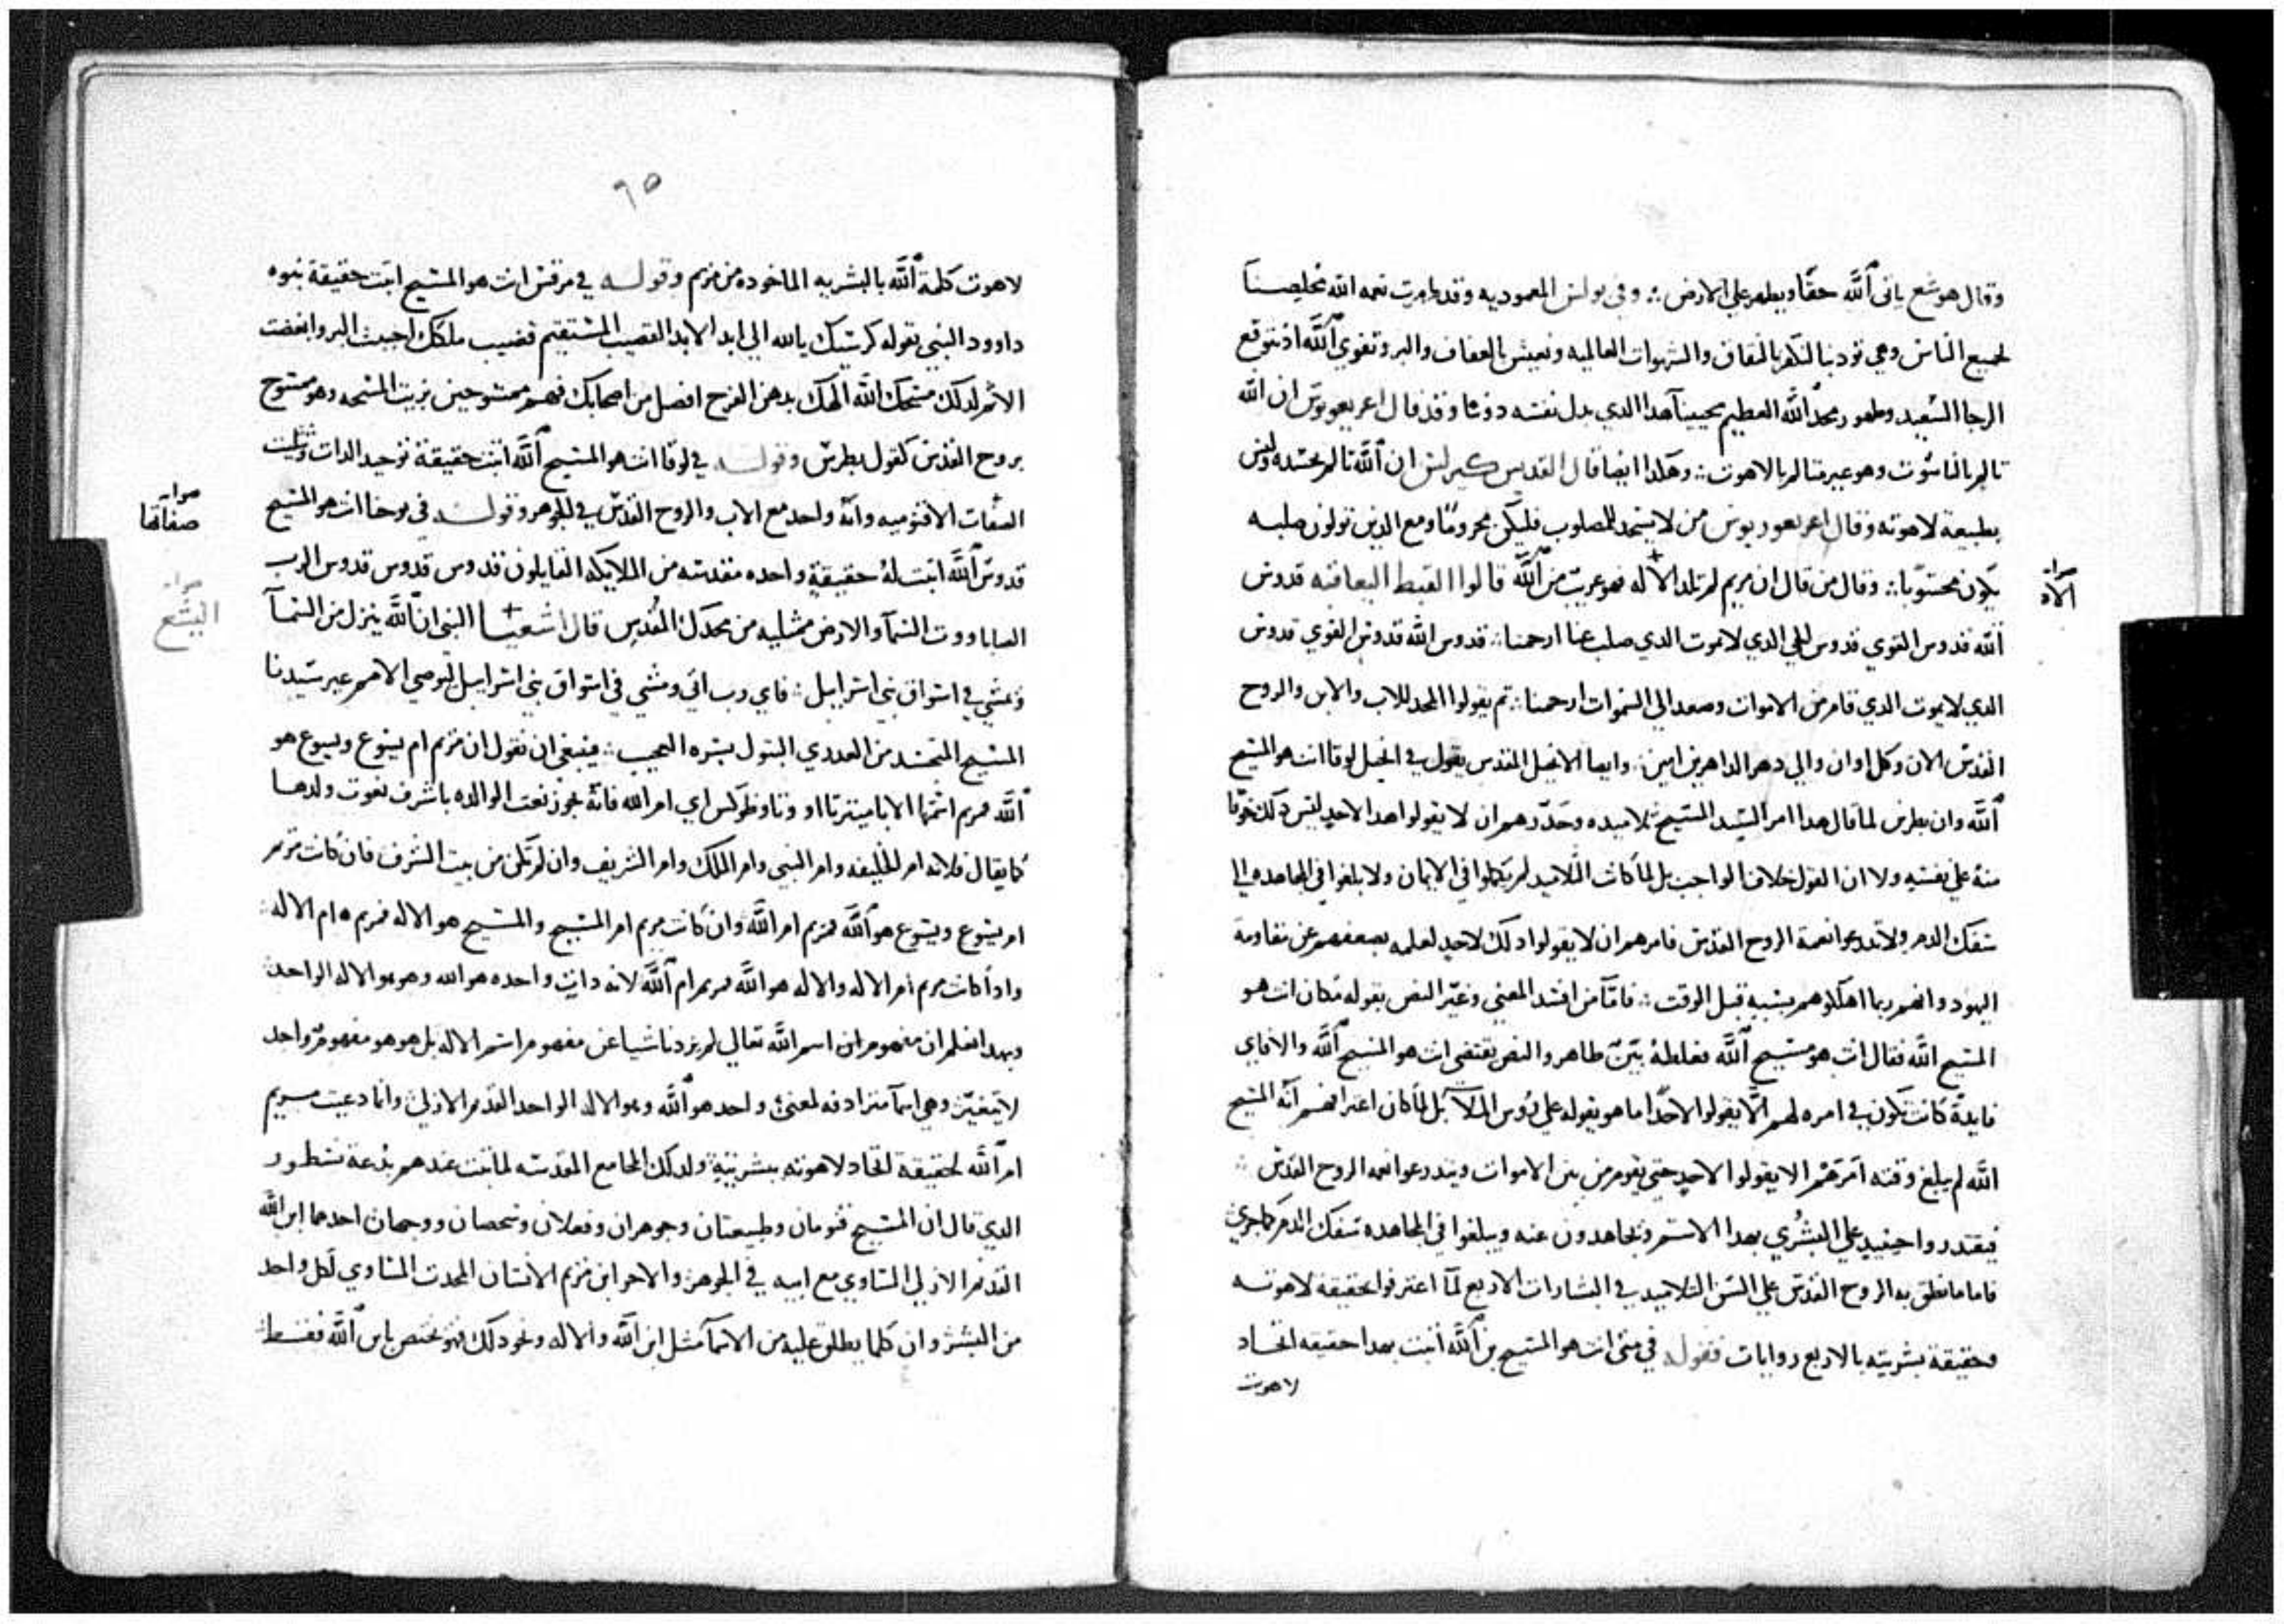 وقال هوشع ياتي الله حقا ويظهر علي الارض ؞ وفي بولس المعموديه وقد ظهرت نعمه الله تخليصنا
لجميع الناس وهي تودبنا لنكفر بالنفاق والشهوات العالميه ونعيش بالعفاف والبر وتقوي الله اذ نتوقع
الرجا السعيد وظهور مجد الله العظيم محيينا هدا الدي بدل نفسه دوننا وقد قال اغريغوريوس ان الله
تالم بالناسوت وهو غير متالم بالاهوت ؞ وهكدا ايضا قال القديس كيرلس ان الله تالم بجسده وليس
بطبيعة لاهوته وقال اغريغوريوس من لا يسجد للمصلوب فليكن محروما ومع الذين تولون صلبه
يكون محسوبا ؞ وقال من قال ان مريم لم تلد الاله فهو غريب من الله قالوا القبط اليعاقبه قدوس
الله قدوس القوي قدوس الحي الدي لا يموت الدي صلب عنا ارحمنا ؞ قدوس الله قدوس القوي قدوس
الدي لا يموت الدي قام من الاموات وصعد الي السموات ارحمنا ؞ تم يقولوا المجد للاب والابن والروح
القدس الان وكل اوان والي دهر الداهرين امين ؞ وايضا الانجيل المقدس يقول في انجيل لوقا انت هو المسيح
الله وان بطرس لما قال هدا امر السيد المسيح تلاميده وحدرهم ان لا يقولوا هدا لاحد ليس دلك خوفا
منه علي نفسه ولا ان القول خلاف الواجب بل لما كانت التلاميد لم يكملوا في الايمان ولا بلغوا في المجاهده الي
سفك الدم ولا تدرعوا نعمة الروح القدس فامرهم ان لا يقولوا دلك لاحد لعلمه بضعفهم عن مقاومة
اليهود وانهم ربما اهلكوهم بسببه قبل الوقت ؞ فاما من افسد المعني وغير النص بقوله مكان انت هو
المسيح الله فقال انت هو مسيح الله فغلطه بين ظاهر والنص يقتضي انت هو المسيح الله والا فاي
فايدة كانت تكون في امره لهم الا يقولوا لاحد اما هو يقوله علي روس الملا بل لما كان اعترافهم انه المسيح
الله لم يبلغ وقته امرهم الا يقولوا لاحد حتي يقوم من بين الاموات ويتدرعوا نعمه الروح القدس ؞
فيقتدروا حينيد علي البشري بهدا الاسم ويجاهدون عنه ويبلغوا في المجاهده سفك الدم كما جري
فاما ما نطق به الروح القدس علي السن التلاميد في البشارات الاربع لما اعترفوا بحقيقة لاهوته
وحقيقة بشريته بالاربع روايات فقوله في متي انت هو المسيح بن الله اثبت بهدا حقيقه اتحاد
لاهوت
الاه
٦٥
لاهوت كلمة الله بالبشريه الماخوده من مريم وقوله في مرقس انت هو المسيح اثبت حقيقة نبوه
داوود النبي بقوله كرسيك يالله الي ابد الابد القضيب المستقيم قضيب ملكك احببت البر وابغضت
الاثم لدلك مسحك الله الهك بدهن الفرح افضل من اصحابك فهم ممسوحين بزيت المسحه وهو ممسوح
بروح القدس كقول بطرس وقوله في لوقا انت هو المسيح الله اثبت حقيقة توحيد الدات وتثليث
الصفات الاقنوميه وانه واحد مع الاب والروح القدس في الجوهر وقوله في يوحنا انت هو المسيح
قدوس الله اثبت له حقيقة واحده مقدسه من الملايكه القايلون قدوس قدوس قدوس الرب
الصاباووت السما والارض ممتليه من مجدك المقدس قال اشعيا النبي ان الله ينزل من السما
ويمشي في اسواق بني اسراييل ؞ فاي رب اتي ومشي في اسواق بني اسراييل ليوصي الامم غير سيدنا
المسيح المتجسد من العدري البتول بسره العجيب ؞ فينبغي ان نقول ان مريم ام يسوع ويسوع هو
الله فمريم اسمها الابامينرتااو وثاوطوكس اي ام الله فانه يجوز نعت الوالده باشرف نعوت ولدها
كما يقال فلانه ام الخليفه وام النبي وام الملك وام الشريف وان لم تكن من بيت الشرف فان كانت مريم
ام يسوع ويسوع هو الله فمريم ام الله وان كانت مريم ام المسيح والمسيح هو الاله فمريم ام الاله ؞
وادا كانت مريم ام الاله والاله هو الله فمريم ام الله لانه دات واحده هو الله وهو هو الاله الواحد
وبهدا نعلم ان مفهوم ان اسم الله تعالي لم يزدنا شيا عن مفهوم اسم الاله بل هو هو مفهوم واحد
لا يتغير وهي اسما مترادفه لمعني واحد هو الله وهو الاله الواحد القديم الازلي وانما دعيت مريم
ام الله لحقيقة اتحاد لاهوته ببشريته ولدلك المجامع المقدسه لما ثبت عندهم بدعة نسطور
الدي قال ان المسيح قنومان وطبيعتان وجوهران وفعلان وشخصان ووجهان احدهما ابن الله
القديم الازلي المساوي مع ابيه في الجوهر والاخر ابن مريم الانسان المحدث المساوي لكل واحد
من البشر وان كلما يطلق عليه من الاسما مثل ابن الله والاله ونحو دلك فهو مختص بابن الله فقط ؞
صفاتها